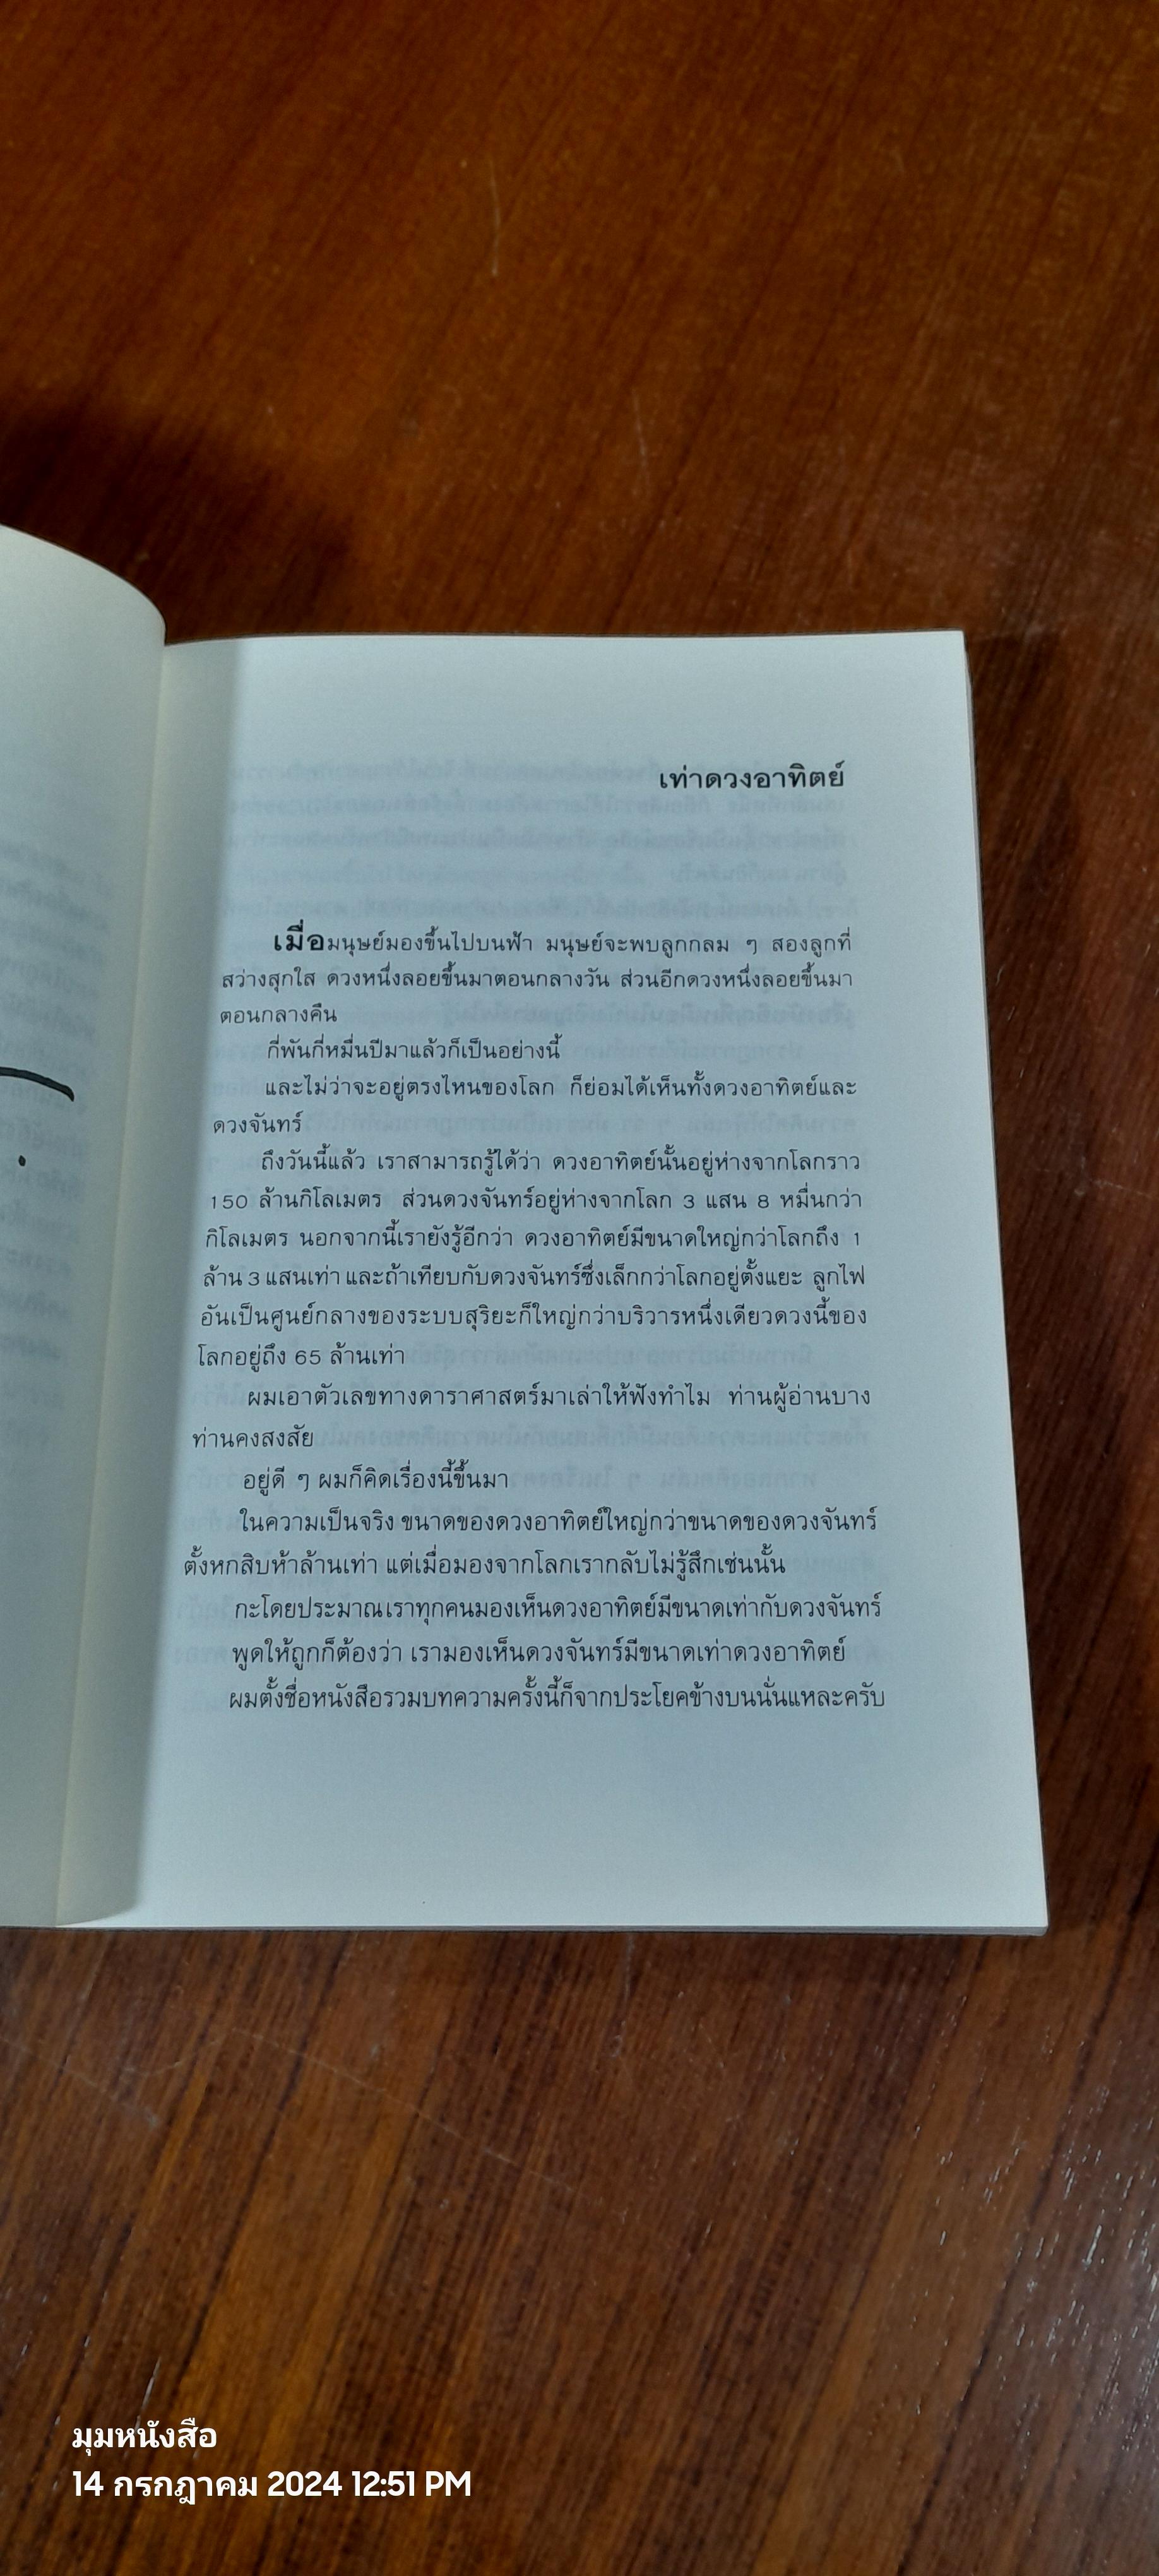 เท่าดวงอาทิตย์
เมื่อมนุษย์มองขึ้นไปบนฟ้า มนุษย์จะพบลูกกลม ๆ สองลูกที่
สว่างสุกใส ดวงหนึ่งลอยขึ้นมาตอนกลางวัน ส่วนอีกดวงหนึ่งลอยขึ้นมา
ตอนกลางคืน
กี่พันกี่หมื่นปีมาแล้วก็เป็นอย่างนี้
และไม่ว่าจะอยู่ตรงไหนของโลก ก็ย่อมได้เห็นทั้งดวงอาทิตย์และ
ดวงจันทร์
ถึงวันนี้แล้ว เราสามารถรู้ได้ว่า ดวงอาทิตย์นั้นอยู่ห่างจากโลกราว
150 ล้านกิโลเมตร ส่วนดวงจันทร์อยู่ห่างจากโลก 3 แสน 8 หมื่นกว่า
กิโลเมตร นอกจากนี้เรายังรู้อีกว่า ดวงอาทิตย์มีขนาดใหญ่กว่าโลกถึง 1
ล้าน 3 แสนเท่า และถ้าเทียบกับดวงจันทร์ซึ่งเล็กกว่าโลกอยู่ตั้งแยะ ลูกไฟ
อันเป็นศูนย์กลางของระบบสุริยะก็ใหญ่กว่าบริวารหนึ่งเดียวดวงนี้ของ
โลกอยู่ถึง 65 ล้านเท่า
ผมเอาตัวเลขทางดาราศาสตร์มาเล่าให้ฟังทำไม ท่านผู้อ่านบาง
ท่านคงสงสัย
อยู่ดี ๆ ผมก็คิดเรื่องนี้ขึ้นมา
ในความเป็นจริง ขนาดของดวงอาทิตย์ใหญ่กว่าขนาดของดวงจันทร์
ตั้งหกสิบห้าล้านเท่า แต่เมื่อมองจากโลกเรากลับไม่รู้สึกเช่นนั้น
กะโดยประมาณเราทุกคนมองเห็นดวงอาทิตย์มีขนาดเท่ากับดวงจันทร์
พูดให้ถูกก็ต้องว่า เรามองเห็นดวงจันทร์มีขนาดเท่าดวงอาทิตย์
ผมตั้งชื่อหนังสือรวมบทความครั้งนี้ก็จากประโยคข้างบนนั่นแหละครับ
มุมหนังสือ
14 กรกฎาคม 2024 12:51 PM